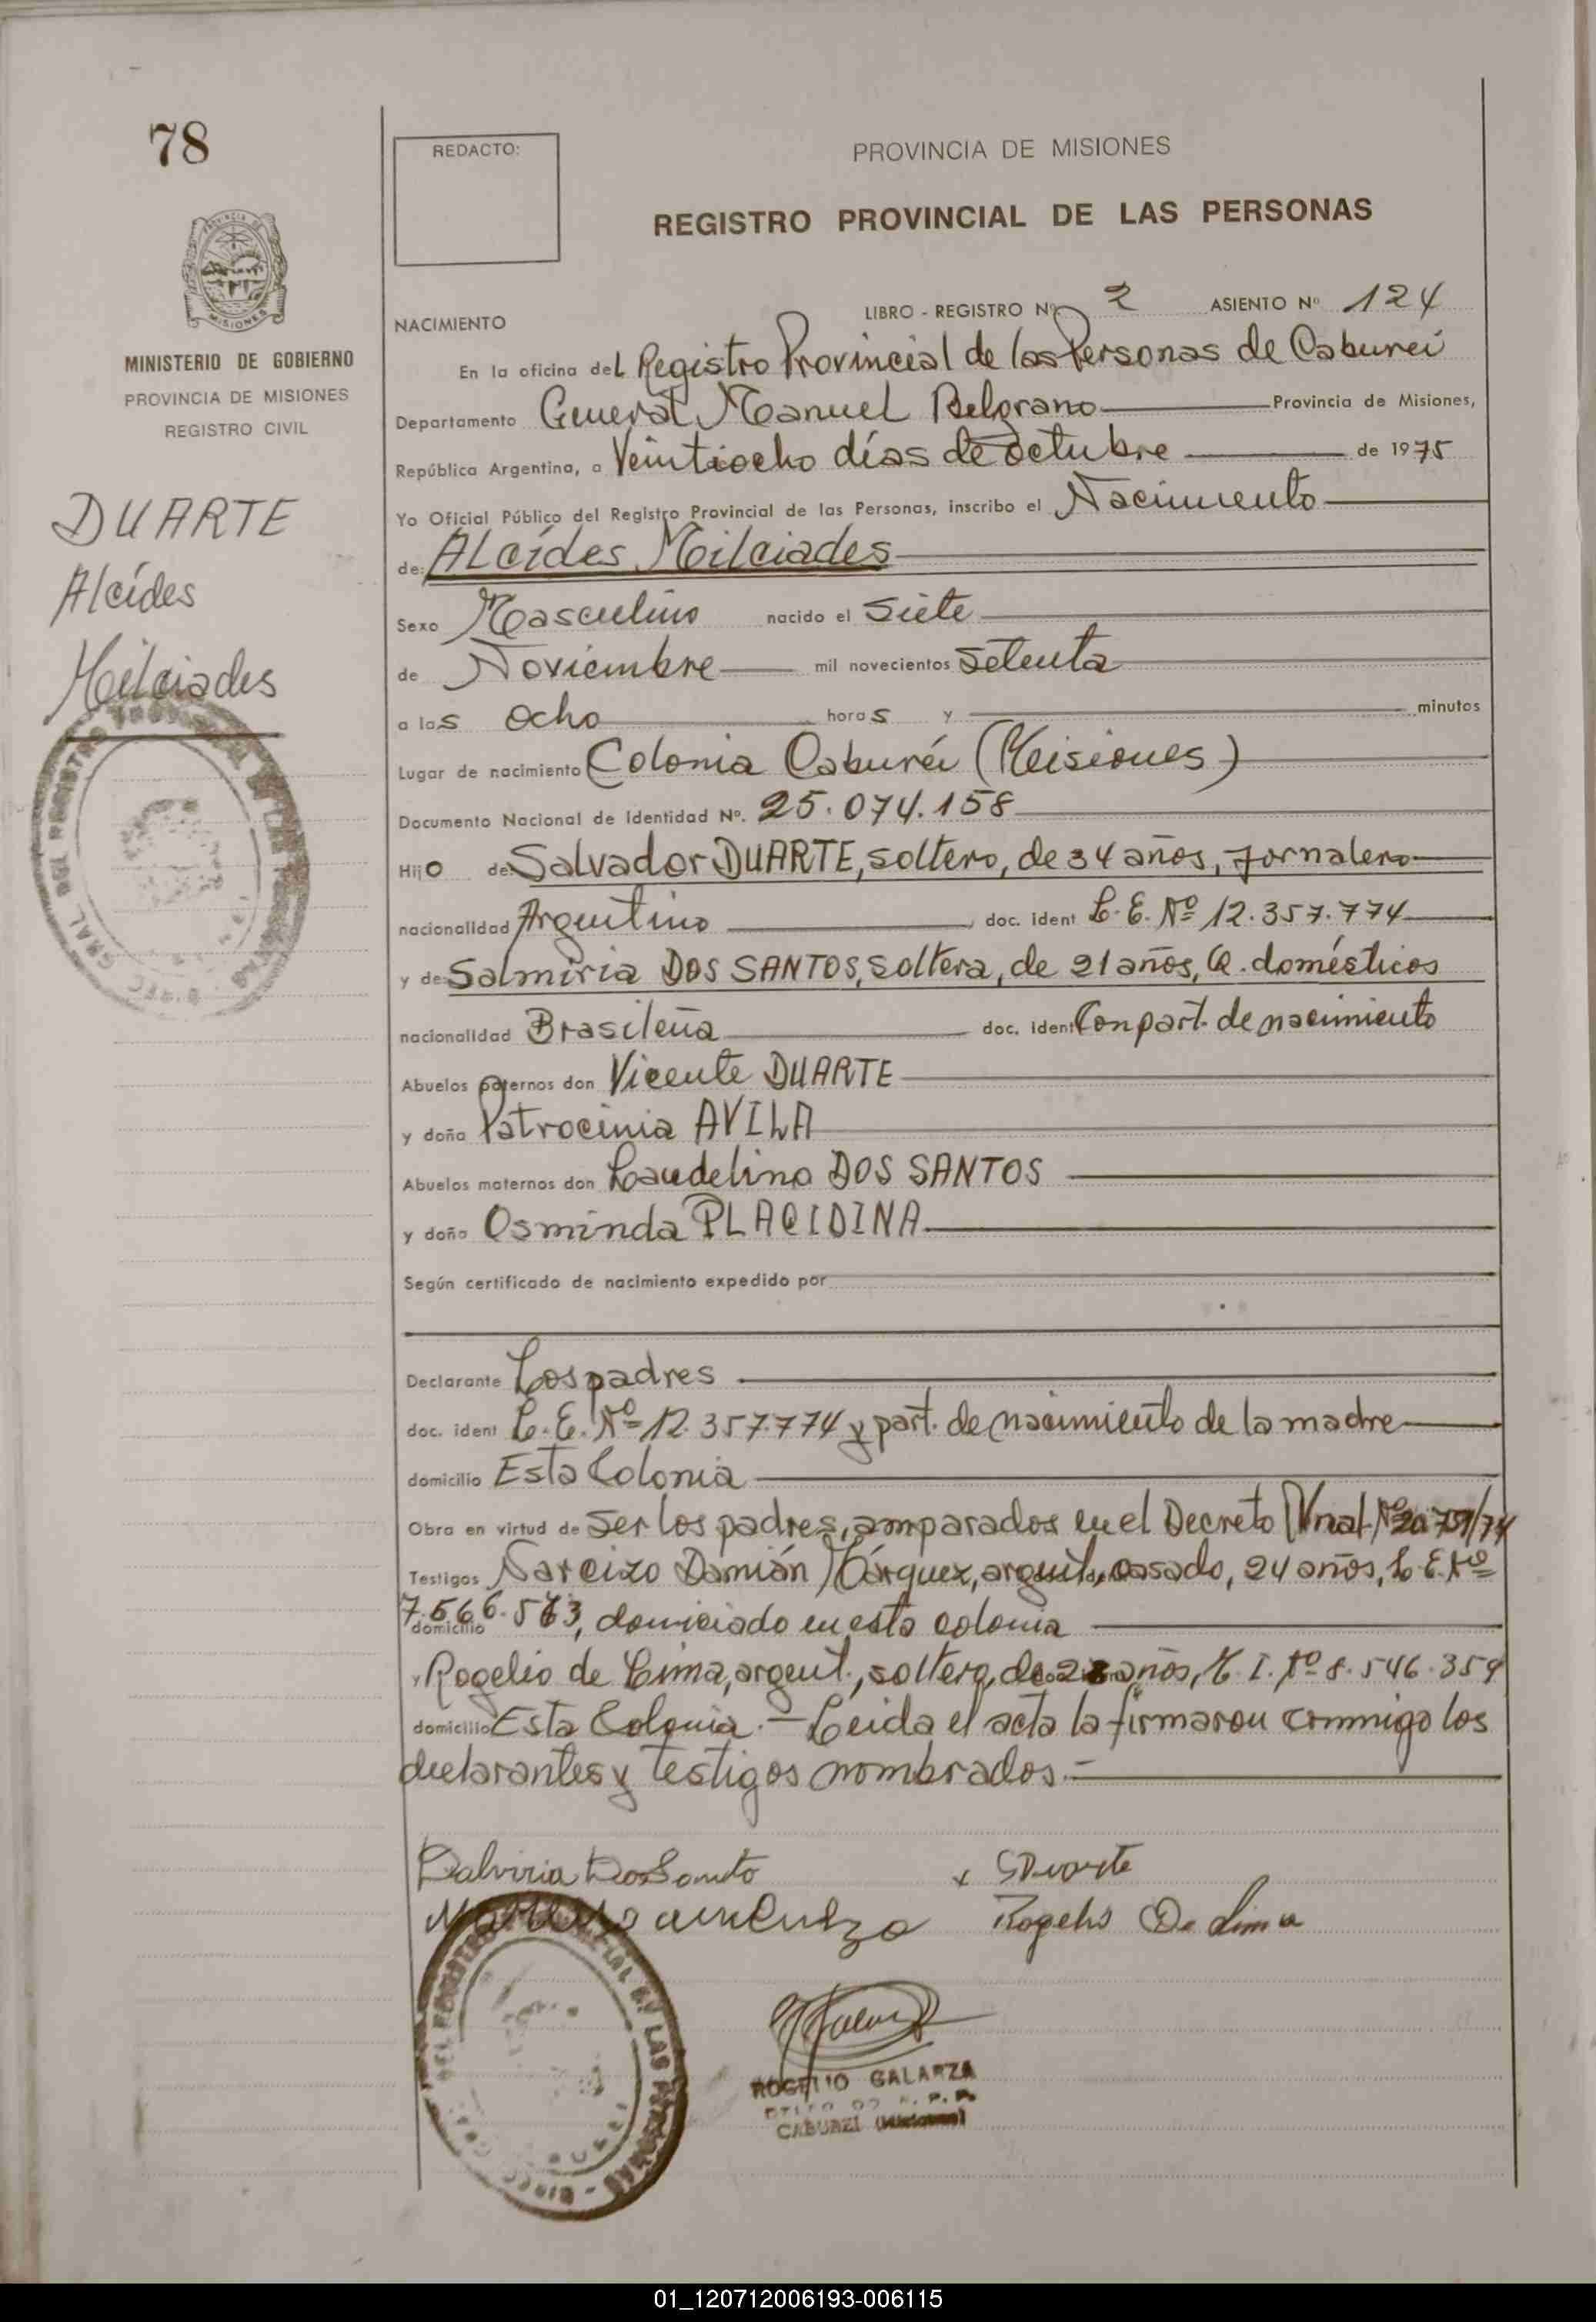 78
REDACTO:
PROVINCIA DE MISIONES
REGISTRO PROVINCIAL DE LAS PERSONAS
MISIONES
MINISTERIO DE GOBIERNO
PROVINCIA DE MISIONES
REGISTRO CIVIL
DUARTE
Alcídes
Milciades
NACIMIENTO
LIBRO - REGISTRO Nº 2 ASIENTO Nº 124
En la oficina del Registro Provincial de las Personas de Caburei
Departamento General Manuel Belgrano Provincia de Misiones,
República Argentina, a Veintiocho días de octubre de 1975
Yo Oficial Público del Registro Provincial de las Personas, inscribo el Nacimiento
de: ALcídes Milciades
Sexo Masculino nacido el siete
de Noviembre mil novecientos setenta
a las ocho horas y minutos
Lugar de nacimiento Colonia Caburéi (Misiones)
Documento Nacional de Identidad Nº. 25.074.158
Hijo de: Salvador DUARTE, soltero, de 34 años, Jornalero
nacionalidad Argentino doc. ident L.E. Nº 12.357.774
y de: Salmiria DOS SANTOS, soltera, de 21 años, Q. domésticos
nacionalidad Brasileña doc. ident Con part. de nacimiento
Abuelos paternos don Vicente DUARTE
y doña Patrocinia AVILA
Abuelos maternos don Laudelino DOS SANTOS
y doña Osminda PLACIDINA
Según certificado de nacimiento expedido por
Declarante Los padres
doc. ident L.E. Nº 12.357.774 y part. de nacimiento de la madre
domicilio Esta Colonia
Obra en virtud de ser los padres, amparados en el Decreto
Testigos Narcizo Damián Márquez, argent., casado, 24 años, L.E. Nº
domicilio 7.566.563, domiciado en esta colonia
y Rogelio de Lima, argent., soltero, de años, M.I. Nº 8.546.359
domicilio Esta Colonia.- Leida el acta la firmaron conmigo los
declarantes y testigos nombrados.-
x SDuarte
Rogelio De Lima
ROGELIO GALARZA
01_120712006193-006115